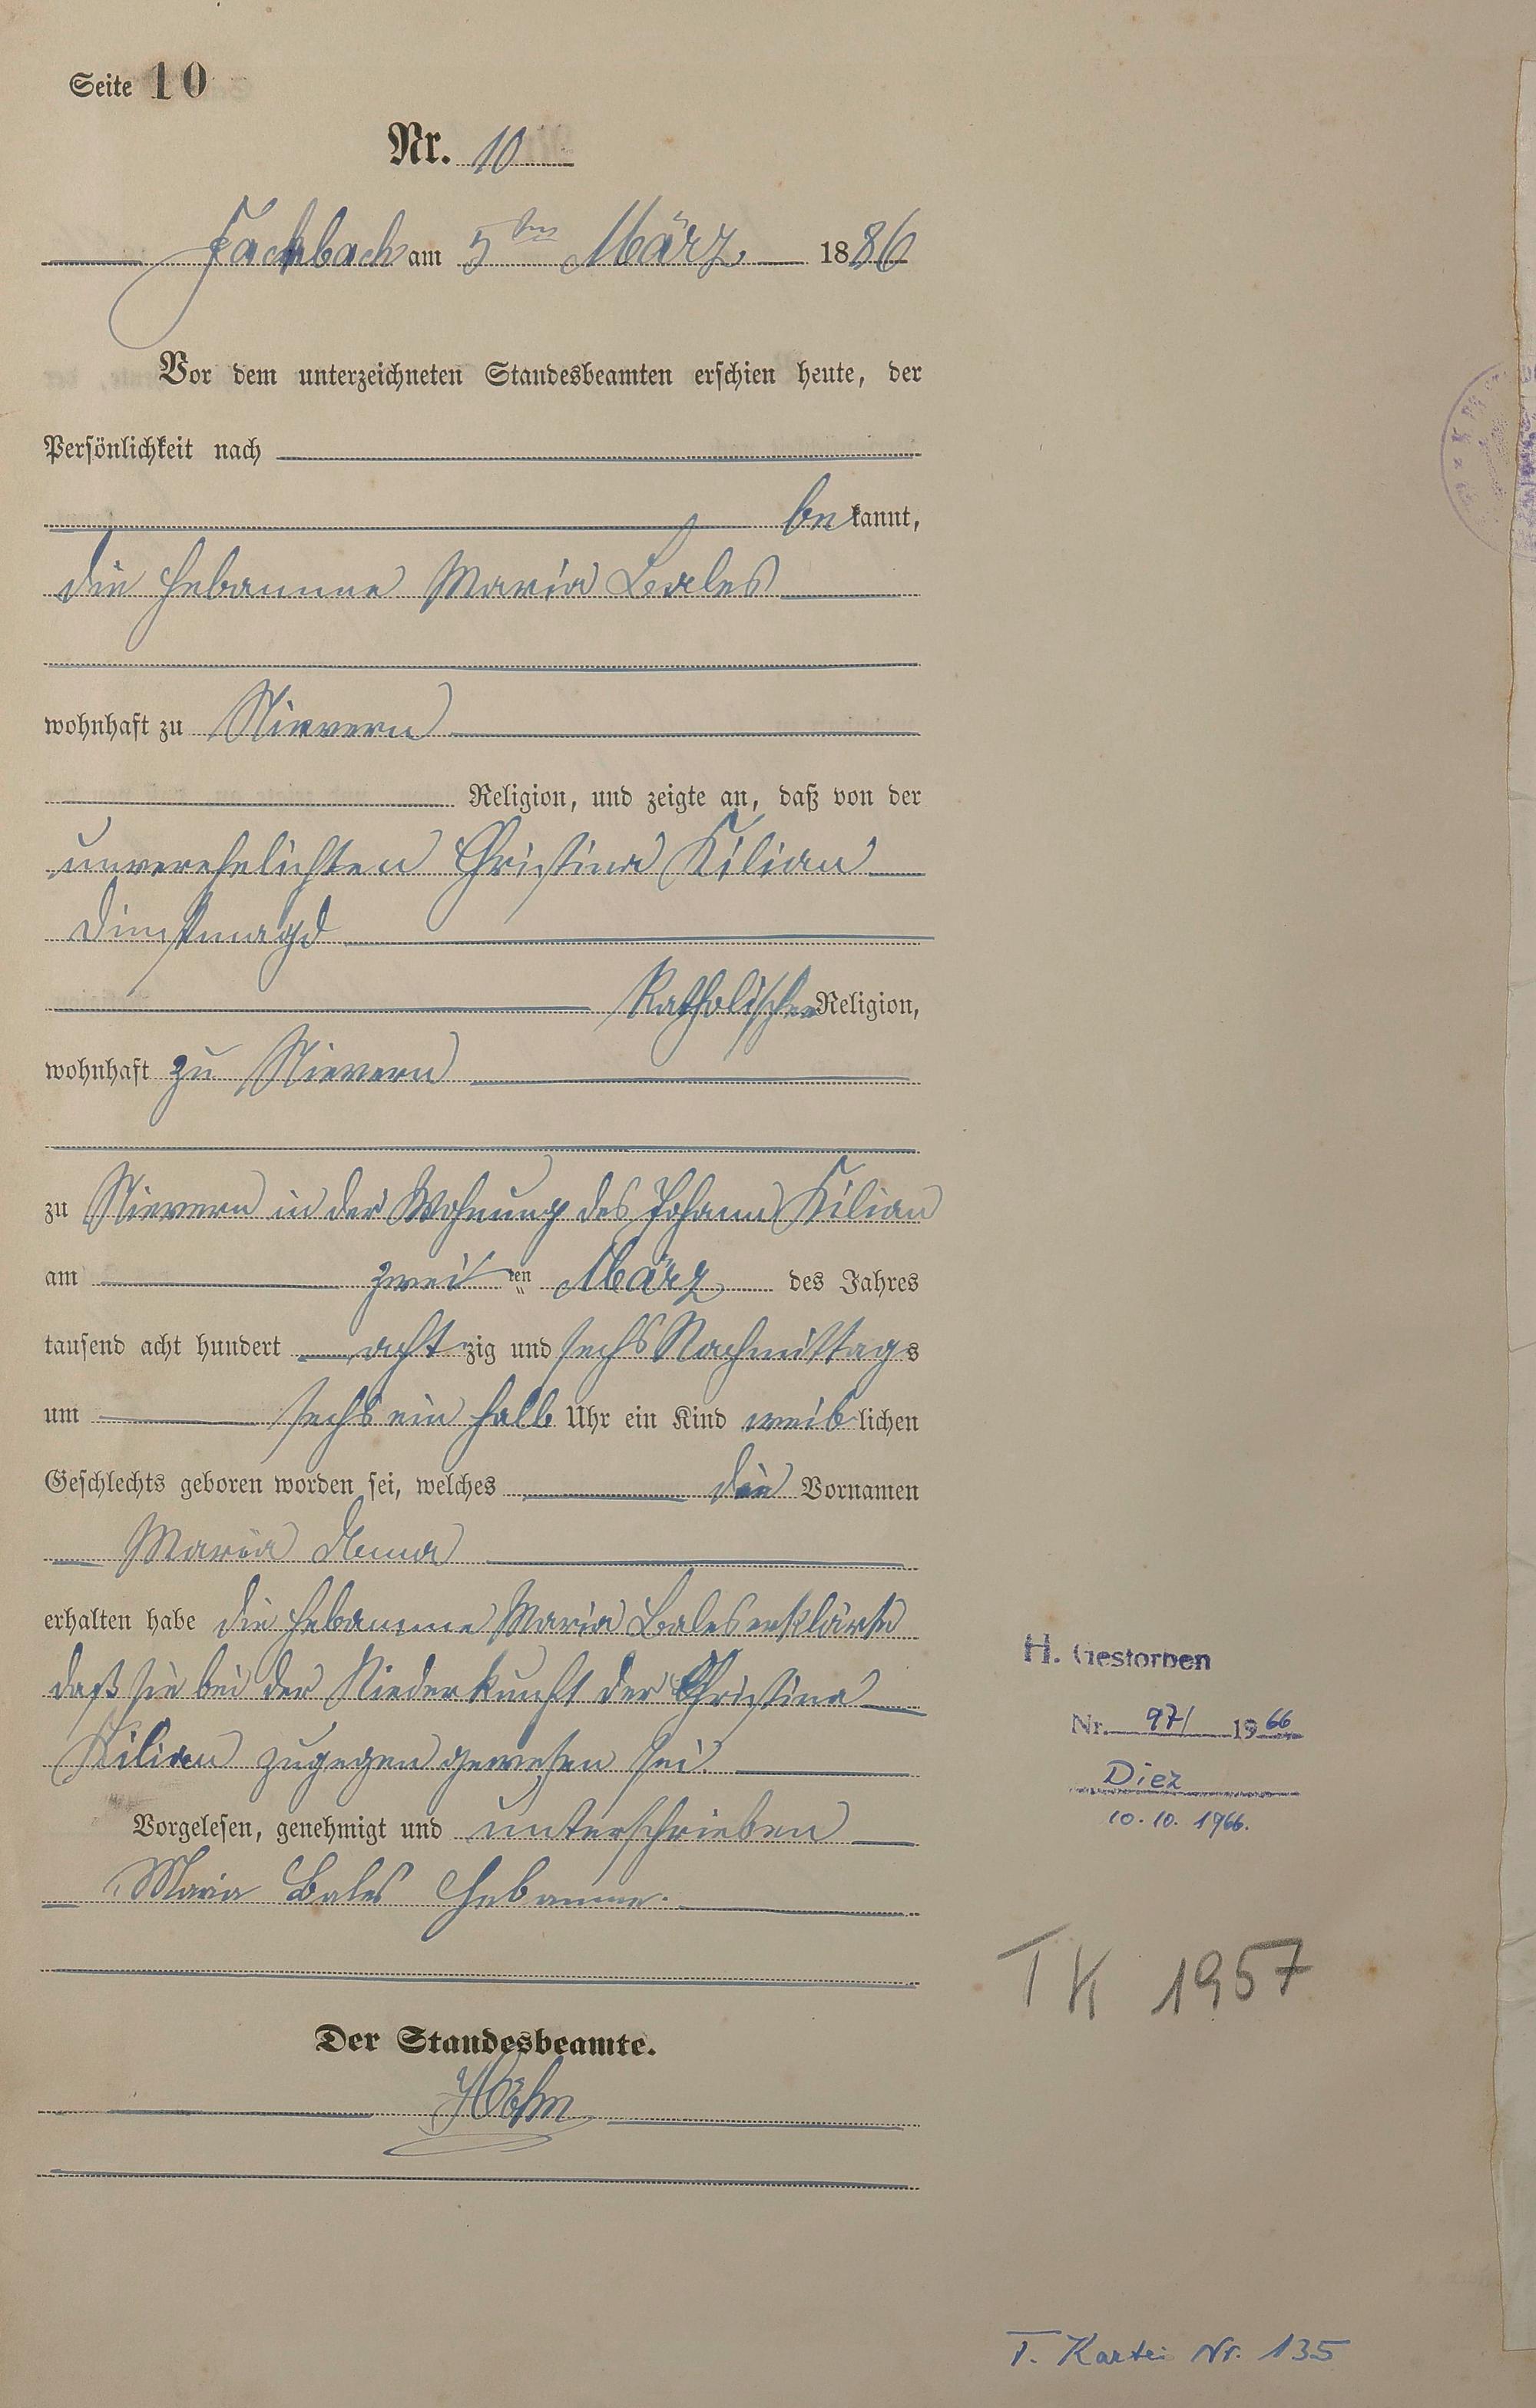 Seite 10
Nr. 10
Fachbach am 5ten März 1886
Vor dem unterzeichneten Standesbeamten erschien heute, der
Persönlichkeit nach
bekannt,
die Hebamme Maria Bales
wohnhaft zu Nievern
Religion, und zeigte an, daß von der
unverehelichten Christina Kilian
Dienstmagd
katholischer Religion,
wohnhaft zu Nievern
zu Nievern in der Wohnung des Johann Kilian
am zweiten März des Jahres
tausend acht hundert achtzig und sechs Nachmittags
um sechs ein halb Uhr ein Kind weiblichen
Geschlechts geboren worden sei, welches die Vornamen
Maria Anna
erhalten habe die Hebamme Maria Bales erklärte
daß sie bei der Niederkunft der Christina
Kilian zugegen gewesen sei.
Vorgelesen, genehmigt und unterschrieben
Maria Bales Hebamme.
Der Standesbeamte.
H. Gestorben
Nr. 971 1966
Diez
10.10.1966.
TK 1957
T. Kartei Nr. 135